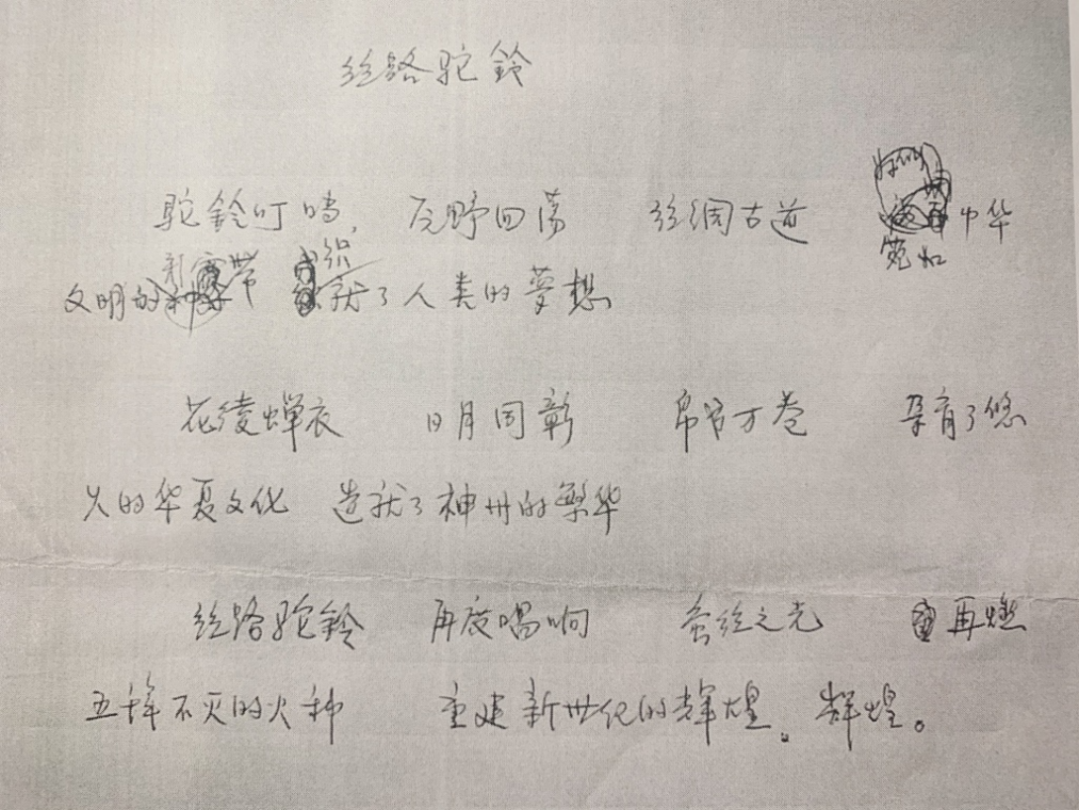 丝路驼鈴
驼鈴叮噹，原野回荡 丝绸古道 宛如中华
文明的彩带 织就了人类的夢想
花绫蝉衣 日月同彰 帛书万卷 孕育了悠
久的华夏文化 造就了神州的繁华
丝路驼鈴 再度唱响 蚕丝之光 再燃
五千年不灭的火种 重建新世纪的辉煌。辉煌。